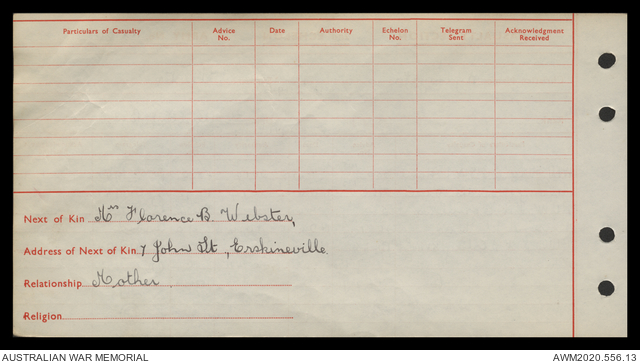 Particulars of Casualty Advice No. Date Authority Echelon No. Telegram Sent Acknowledgment Received
Next of Kin Mrs Florence B. Webster,
Address of Next of Kin 7 John St, Erskineville.
Relationship Mother.
Religion
AUSTRALIAN WAR MEMORIAL AWM2020.556.13